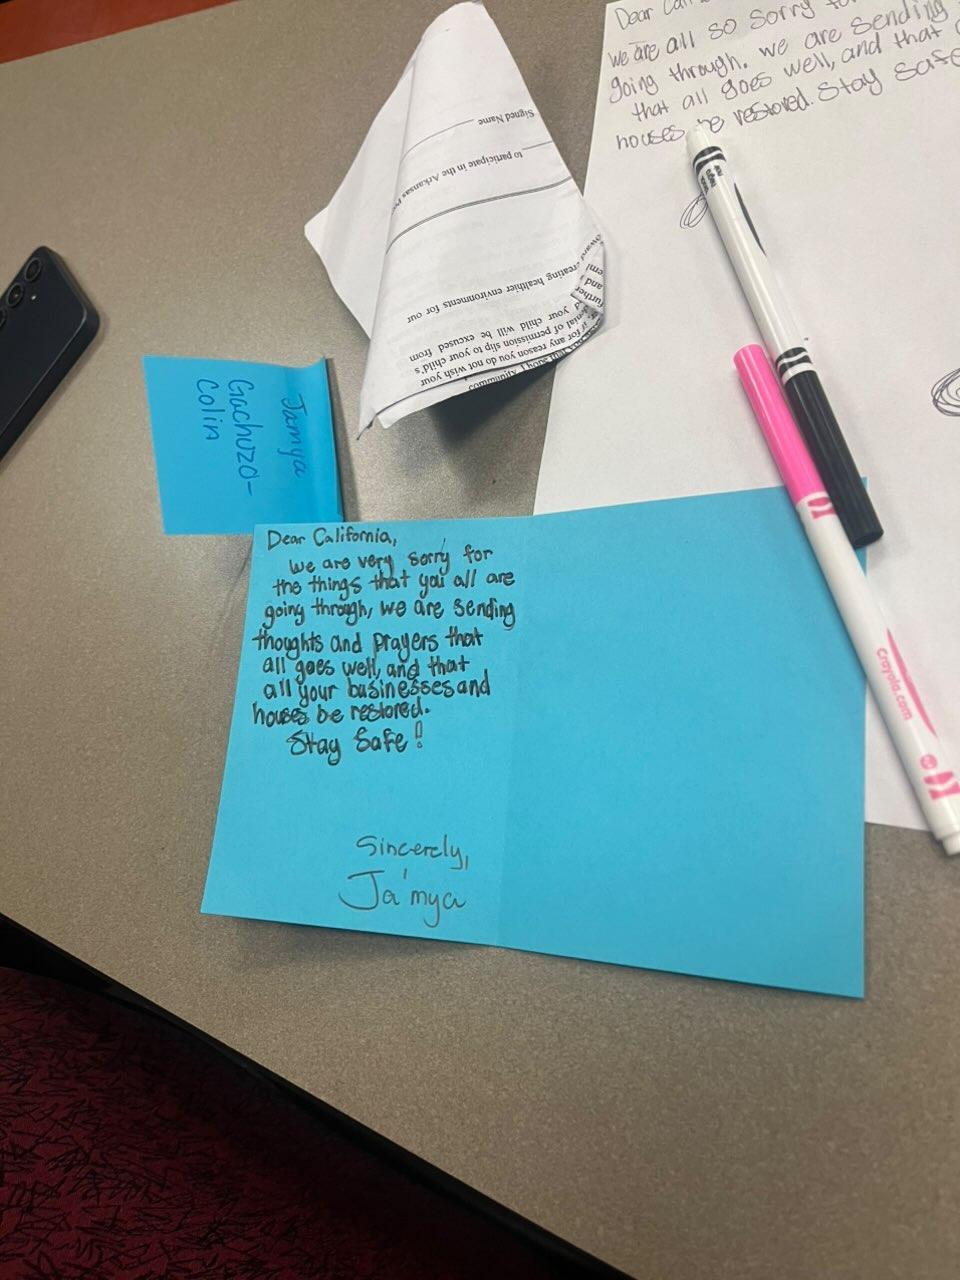 Dear Cali
We are all so sorry fo
going through. we are sending
that all goes well, and that
houses be restored. Stay safe
Signed Name
to participate in the Arkansas
creating healthier environments for our
your child will be excused from
denial of permission slip to your child's
if for any reason you do not wish your
community. I hope that
Jamya
Gachuzo-
Colin
Dear California,
we are very sorry for
the things that you all are
going through, we are sending
thoughts and prayers that
all goes well, and that
all your businesses and
houses be restored.
Stay Safe!
Sincerely,
Ja'mya
Crayola.com